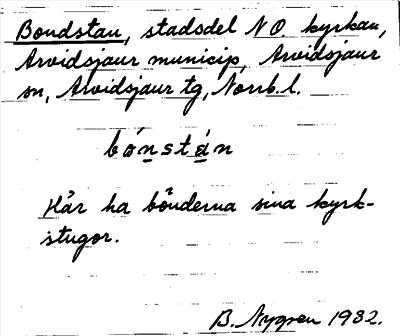 Bondstan, stadsdel NO. kyrkan,
Arvidsjaur municip, Arvidsjaur
sn, Arvidsjaur tg, Norrb. l.
bónstán
Här ha bönderna sina kyrk-
stugor.
B. Nygren 1932.